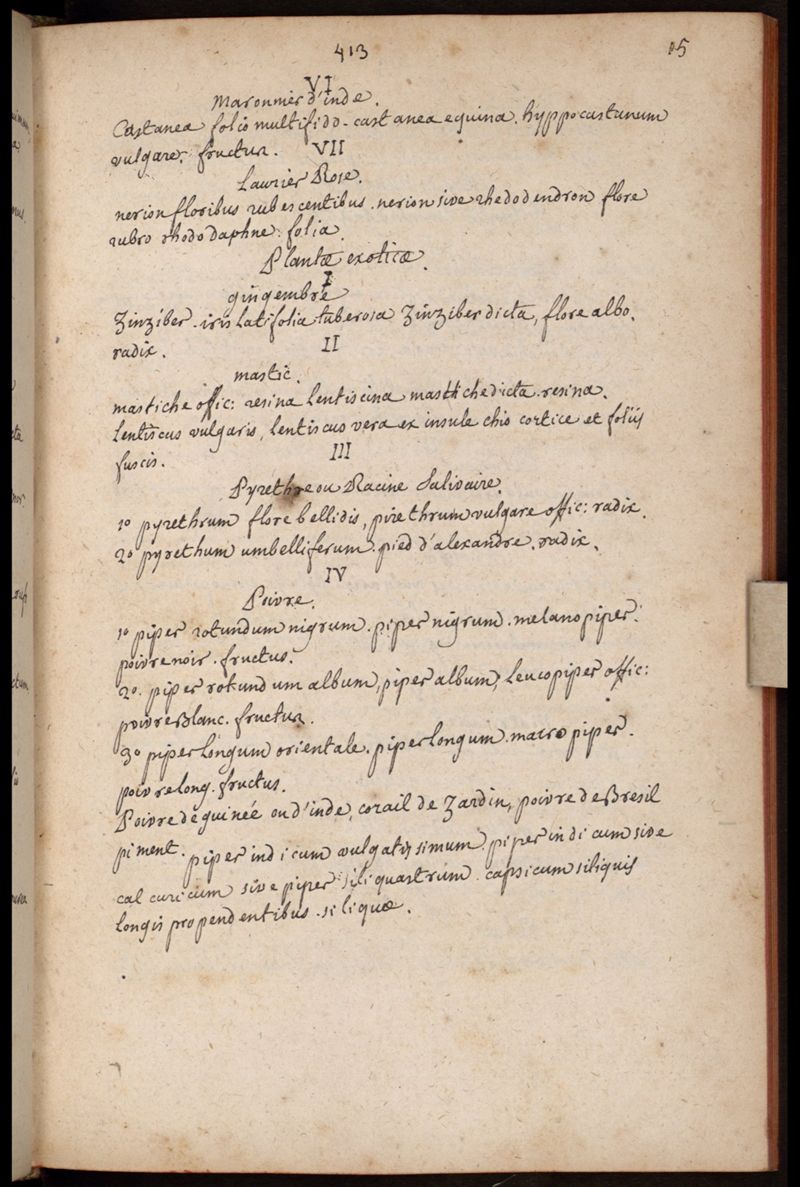 413 05
VI
Maronnier d'inde.
Castanea folio multifido. castanea equina. hyppocastanum
vulgare. fructus. VII
Laurier Rose.
nerion floribus rubescentibus. nerion sive rhedodendron flore
rubro rhododaphne. folia.
Plantæ exoticæ.
I
gingembre
Zinziber. iris latifolia tuberosa Zinziber dicta, flore albo.
radix. II
mastic.
mastiche offic: resina lentiscina mastiche dicta. resina.
lentiscus vulgaris, lentiscus vera ex insule chio cortice et foliis
fuscis. III
Pyrethre ou Racine Salivaire.
1o pyrethrum flore bellidis, pirethrum vulgare offic: radix.
2o pyrethum umbelliferum. pied d'alexandre. radix.
IV
Poivre.
1o piper rotundum nigrum. piper nigrum. melanopiper.
poivre noir. fructus.
2o. piper rotundum album, piper album, leucopiper offic:
poivre Blanc. fructus.
3o piper longum orientale. piper longum. macropiper.
poivre long. fructus.
Poivre de guinée ou d'inde, corail de Zardin, poivre de Bresil
piment. piper indicum vulgatissimum. piper indicum sive
calcuricum sive piper siliquastrum. capsicum siliquis
longis propendentibus. siliquæ.